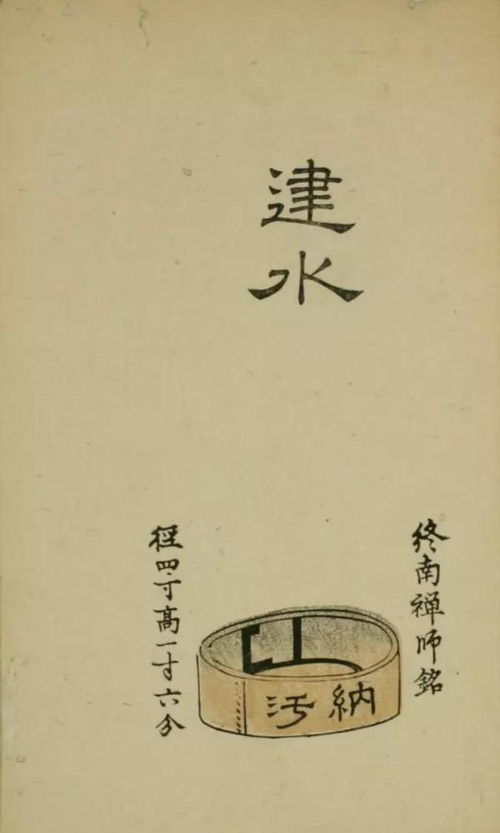 建水
終南禅師銘
納汚
徑四寸高一寸六分